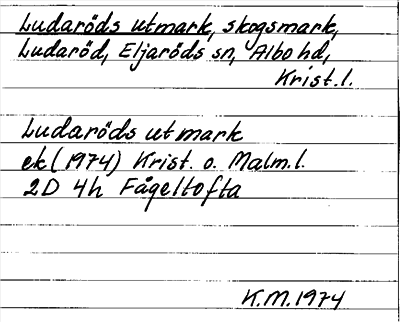 Ludaröds utmark, skogsmark,
Ludaröd, Eljaröds sn, Albo hd,
Krist.l.
Ludaröds utmark
ek (1974) Krist. o. Malm.l.
2D 4h Fågeltofta
K.M.1974